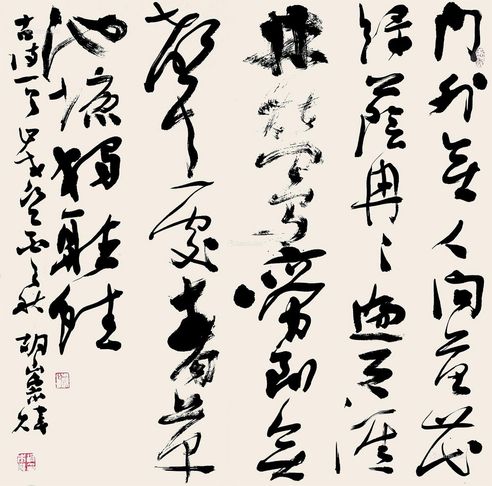 門外無人問落花
綠蔭冉〻遍天涯
林鶯啼到無
聲處青草
池塘獨聽蛙
古诗一首 之秋 胡崇煒